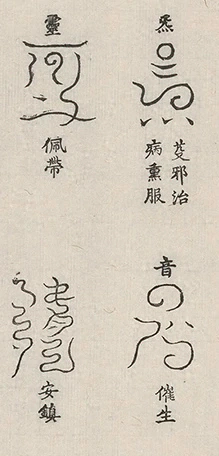 炁
芟邪治
病熏服
靈
佩帶
音
催生
安鎮